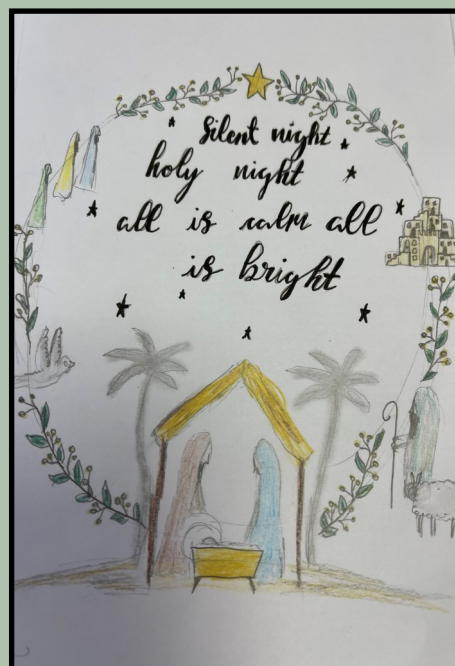 Silent night
holy night
all is calm all
is bright